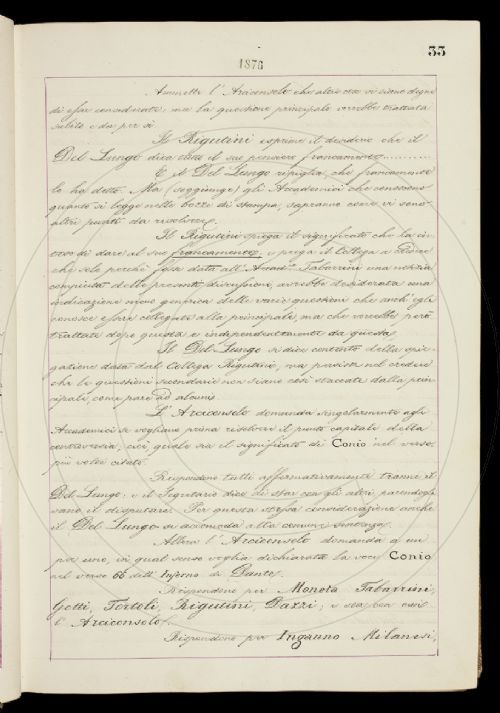 33
1876
Ammette l'Arciconsolo che altre cose vi siano degne
di esser considerate, ma la questione principale vorrebbe trattata
subito e da per sè.
Il Rigutini esprime il desiderio che il
Del Lungo dica tutto il suo pensiero francamente
E il Del Lungo ripiglia, che francamente
lo ha detto. Ma (soggiunge) gli Accademici che conoscono
quanto si legge nelle bozze di stampa, sapranno come vi sono
altri punti da risolvere.
Il Rigutini spiega il significato che
di dare al suo francamente, e prega il Collega a credere
che solo perchè fosse data all' Tabarrini una notizia
compiuta della presente discussione, avrebbe desiderata una
indicazione meno generica delle varie questioni che anch' egli
conosce esser collegate alla principale, ma che vorrebbe però
trattate dopo questa e indipendentemente da questa.
Il Del Lungo si dice contento della spie-
gazione data dal Collega Rigutini, ma persiste nel credere
che le questioni secondarie non siano così staccate dalla prin-
cipale, come pare ad alcuni.
L'Arciconsolo domanda singolarmente agli
Accademici se vogliano prima risolvere il punto capitale della
controversia; cioè, quale sia il significato di Conio nel verso
più volte citato.
Rispondono tutti affermativamente tranne il
Del Lungo: e il Segretario dice di star con gli altri, parendogli
vano il disputare. Per questa stessa considerazione anche
il Del Lungo si accomoda alla comune sentenza.
Allora l'Arciconsolo domanda a uno
per uno, in qual senso voglia dichiarata la voce Conio
nel verso 66 dell' Inferno di Dante.
Rispondono per Moneta Tabarrini,
Gotti, Tortoli, Rigutini, Dazzi, e
l'Arciconsolo.
Rispondono per Inganno Milanesi,